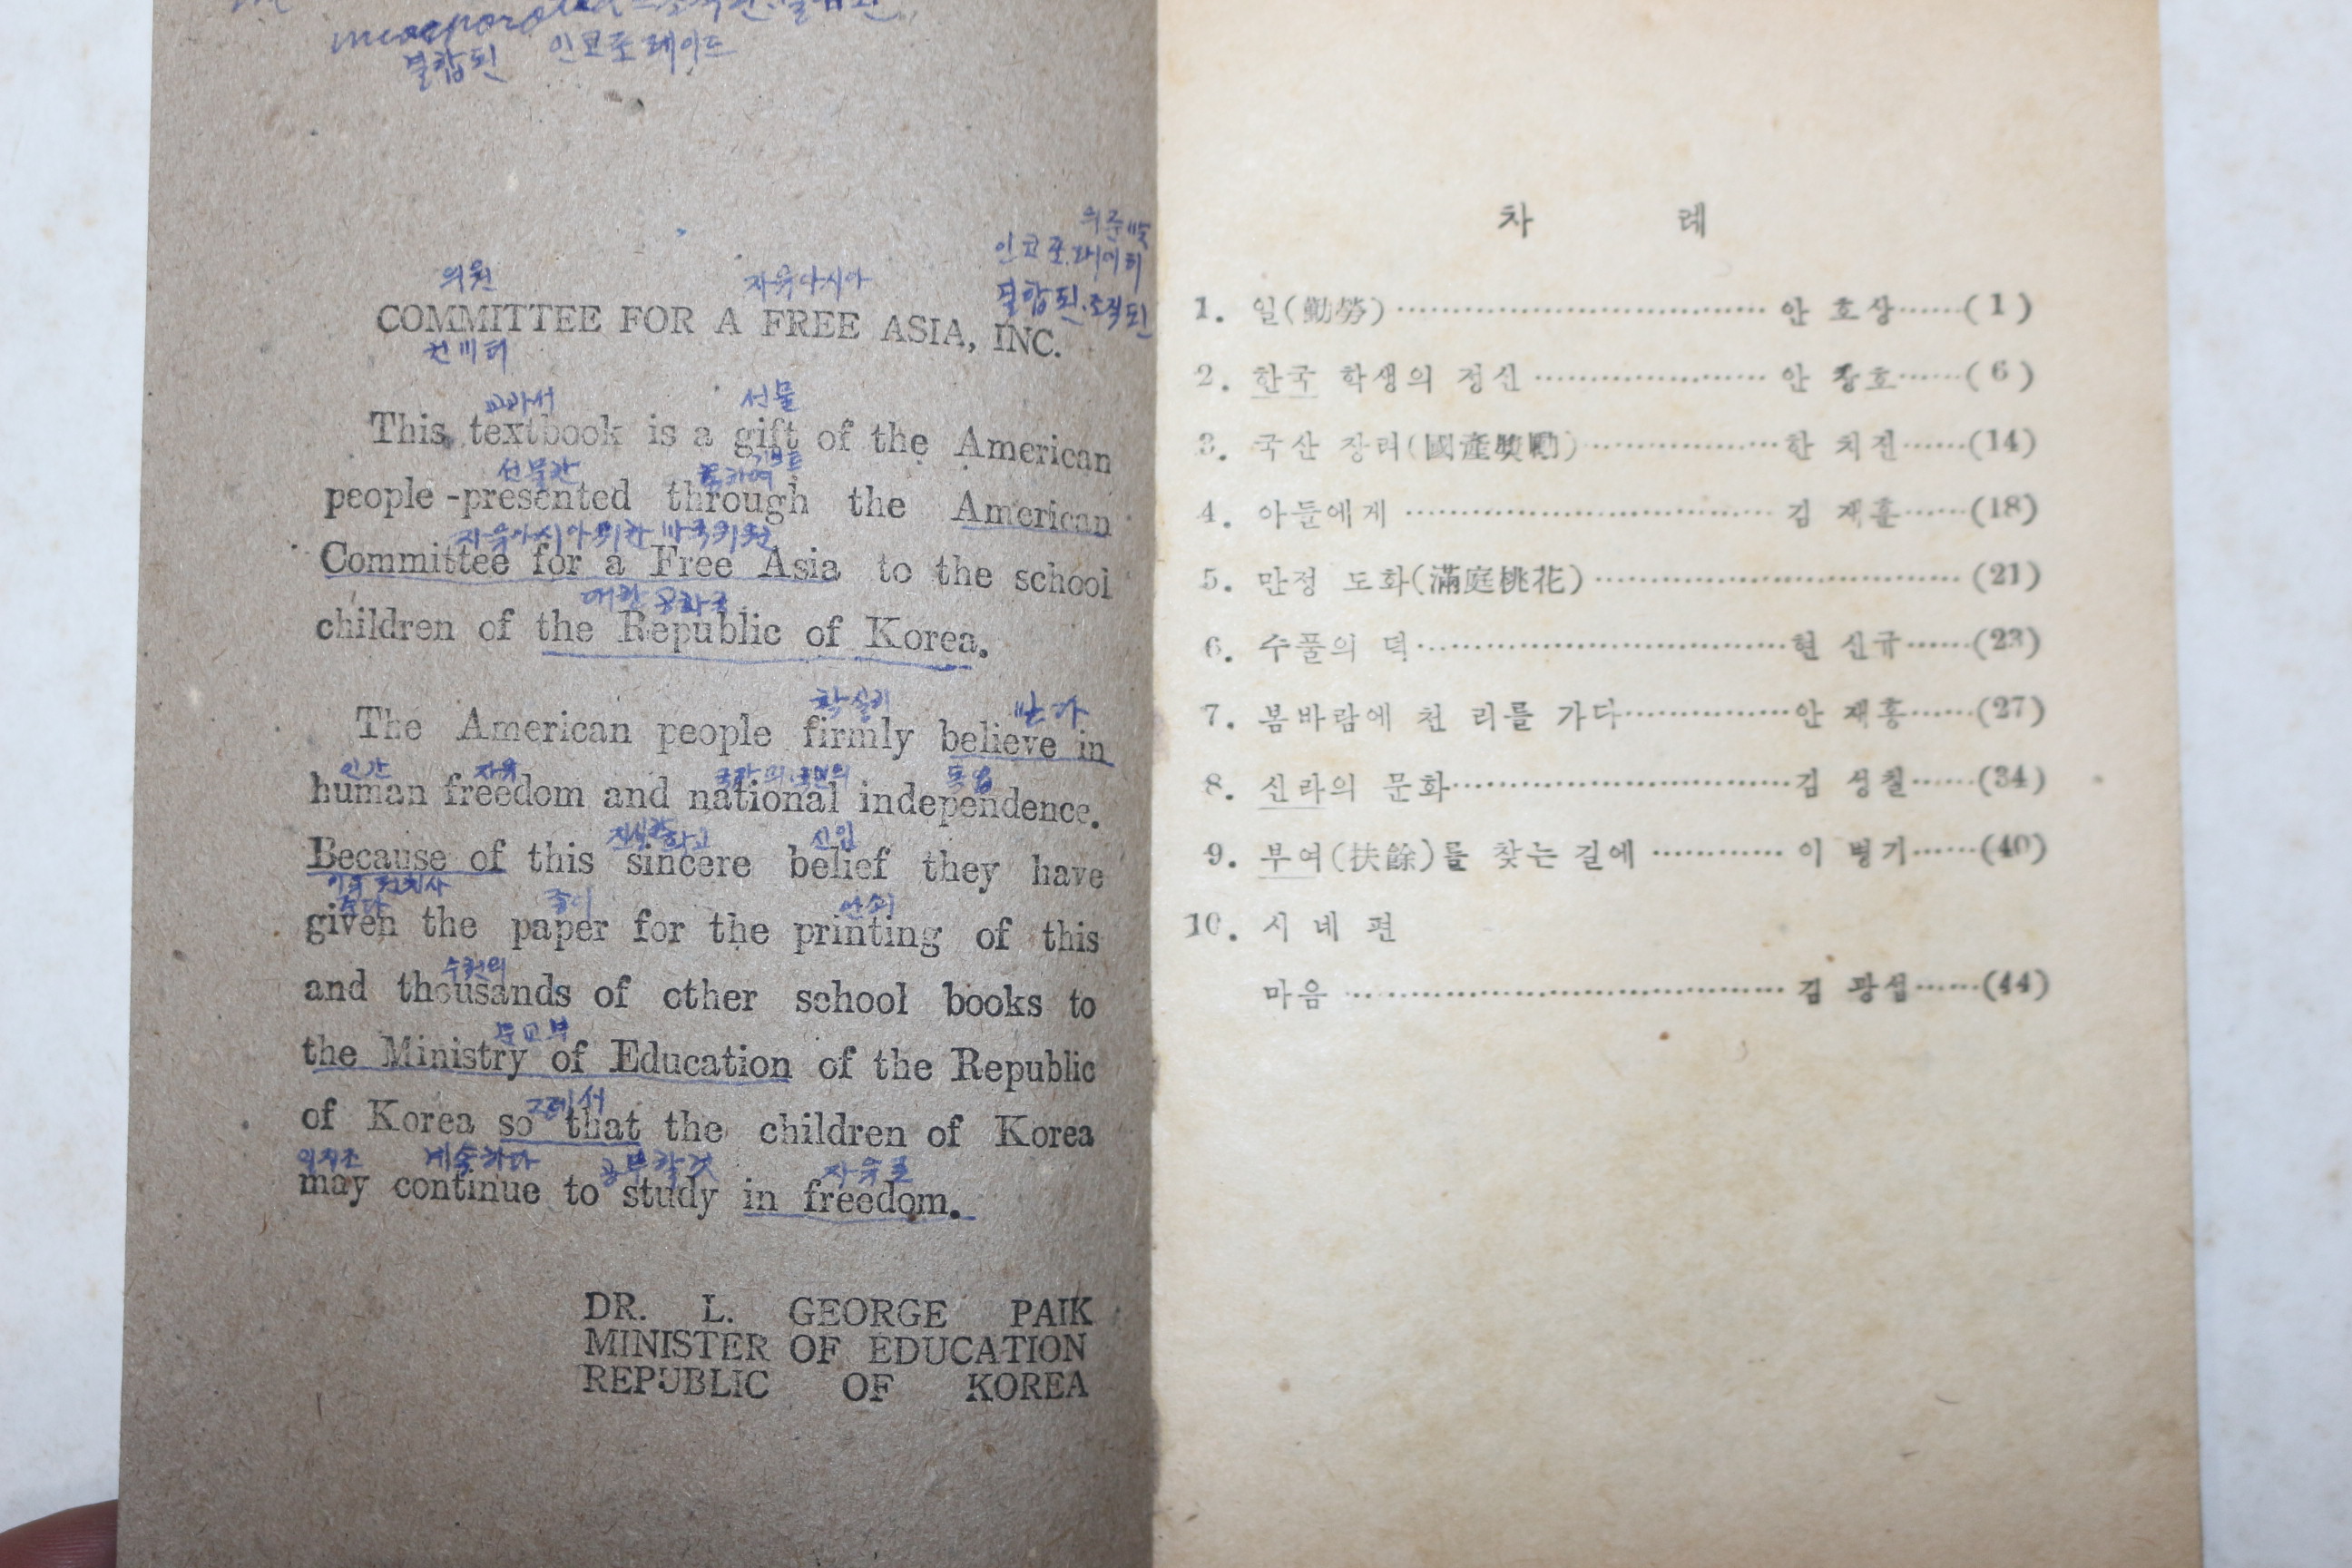 결합된 인코포레이드
의원 자유아시아
결합된.조직된
COMMITTEE FOR A FREE ASIA, INC.
컨미티
교과서 선물
This textbook is a gift of the American
people -presented through the American
Committee for a Free Asia to the school
children of the Republic of Korea.
확실히 믿다
The American people firmly believe in
인간 자유 독립
human freedom and national independence.
Because of this sincere belief they have
종이 인쇄
given the paper for the printing of this
수천의
and thousands of other school books to
문교부
the Ministry of Education of the Republic
그래서
of Korea so that the children of Korea
계속하다 공부할것 자유로
may continue to study in freedom.
DR. L. GEORGE PAIK
MINISTER OF EDUCATION
REPUBLIC OF KOREA
차 례
1. 일(勤勞) 안 호상 (1)
2. 한국 학생의 정신 안 창호 (6)
3. 국산 장려(國產獎勵) 한 치진 (14)
4. 아들에게 김 재훈 (18)
5. 만정 도화(滿庭桃花) (21)
6. 수풀의 덕 현 신규 (23)
7. 봄바람에 천 리를 가다 안 재홍 (27)
8. 신라의 문화 김 성칠 (34)
9. 부여(扶餘)를 찾는 길에 이 병기 (40)
10. 시 네 편
마음 김 광섭 (44)